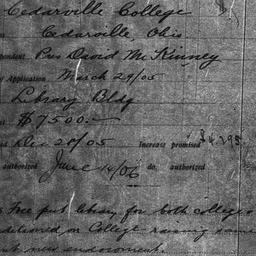 Cedarville College
Cedarville, Ohio
pondent Pres David McKinney
of Application March 29/05
Library Bldg
$7500.—
Dec 20/05 Increase promised $4,295
authorized June 14/06 do. authorized
Free pub library for both college &
conditioned on College raising same
new endowment.